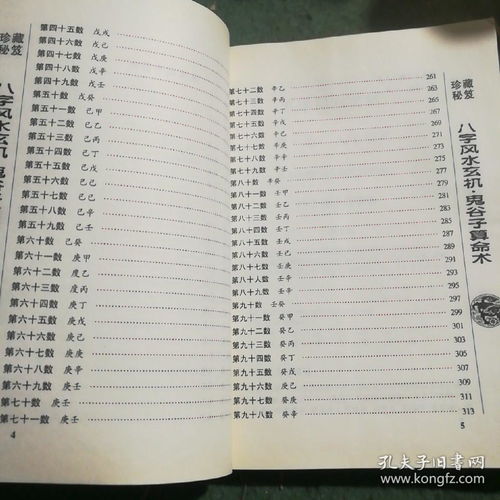 珍藏
秘笈
八字风水玄机·鬼谷子
第四十五数 戊戌
第四十六数 戊己
第四十七数 戊庚
第四十八数 戊辛
第四十九数 戊壬
第五十数 戊癸
第五十一数 己甲
第五十二数 己乙
第五十三数 己丙
第五十四数 己丁
第五十五数
第五十六数
第五十七数
第五十八数 己辛
第五十九数 己壬
第六十数 己癸
第六十一数 庚甲
第六十二数 庚乙
第六十三数 庚丙
第六十四数 庚丁
第六十五数 庚戌
第六十六数 庚己
第六十七数 庚庚
第六十八数 庚辛
第六十九数 庚壬
第七十数 庚壬
第七十一数 庚壬
4
第七十二数 辛乙 261
第七十三数 辛丙 263
第七十四数 辛丁 265
第七十五数 辛戌 267
第七十六数 辛己 269
第七十七数 辛庚 271
第七十八数 辛辛 273
第七十九数 辛壬 275
第八十数 辛癸 277
第八十一数 壬甲 279
第八十二数 壬乙 281
第八十三数 壬丙 283
第八十四数 壬丁 285
第八十五数 壬戌 287
第八十六数 壬己 289
第八十七数 壬庚 291
第八十八数 壬辛 293
第八十九数 壬壬 295
第九十数 壬癸 297
第九十一数 癸甲 299
第九十二数 癸乙 301
第九十三数 癸丙 303
第九十四数 癸丁 305
第九十五数 癸戌 307
第九十六数 癸己 309
第九十七数 癸庚 311
第九十八数 癸辛 313
5
珍藏
秘笈
八字风水玄机·鬼谷子算命术
孔夫子旧书网
www.kongfz.com